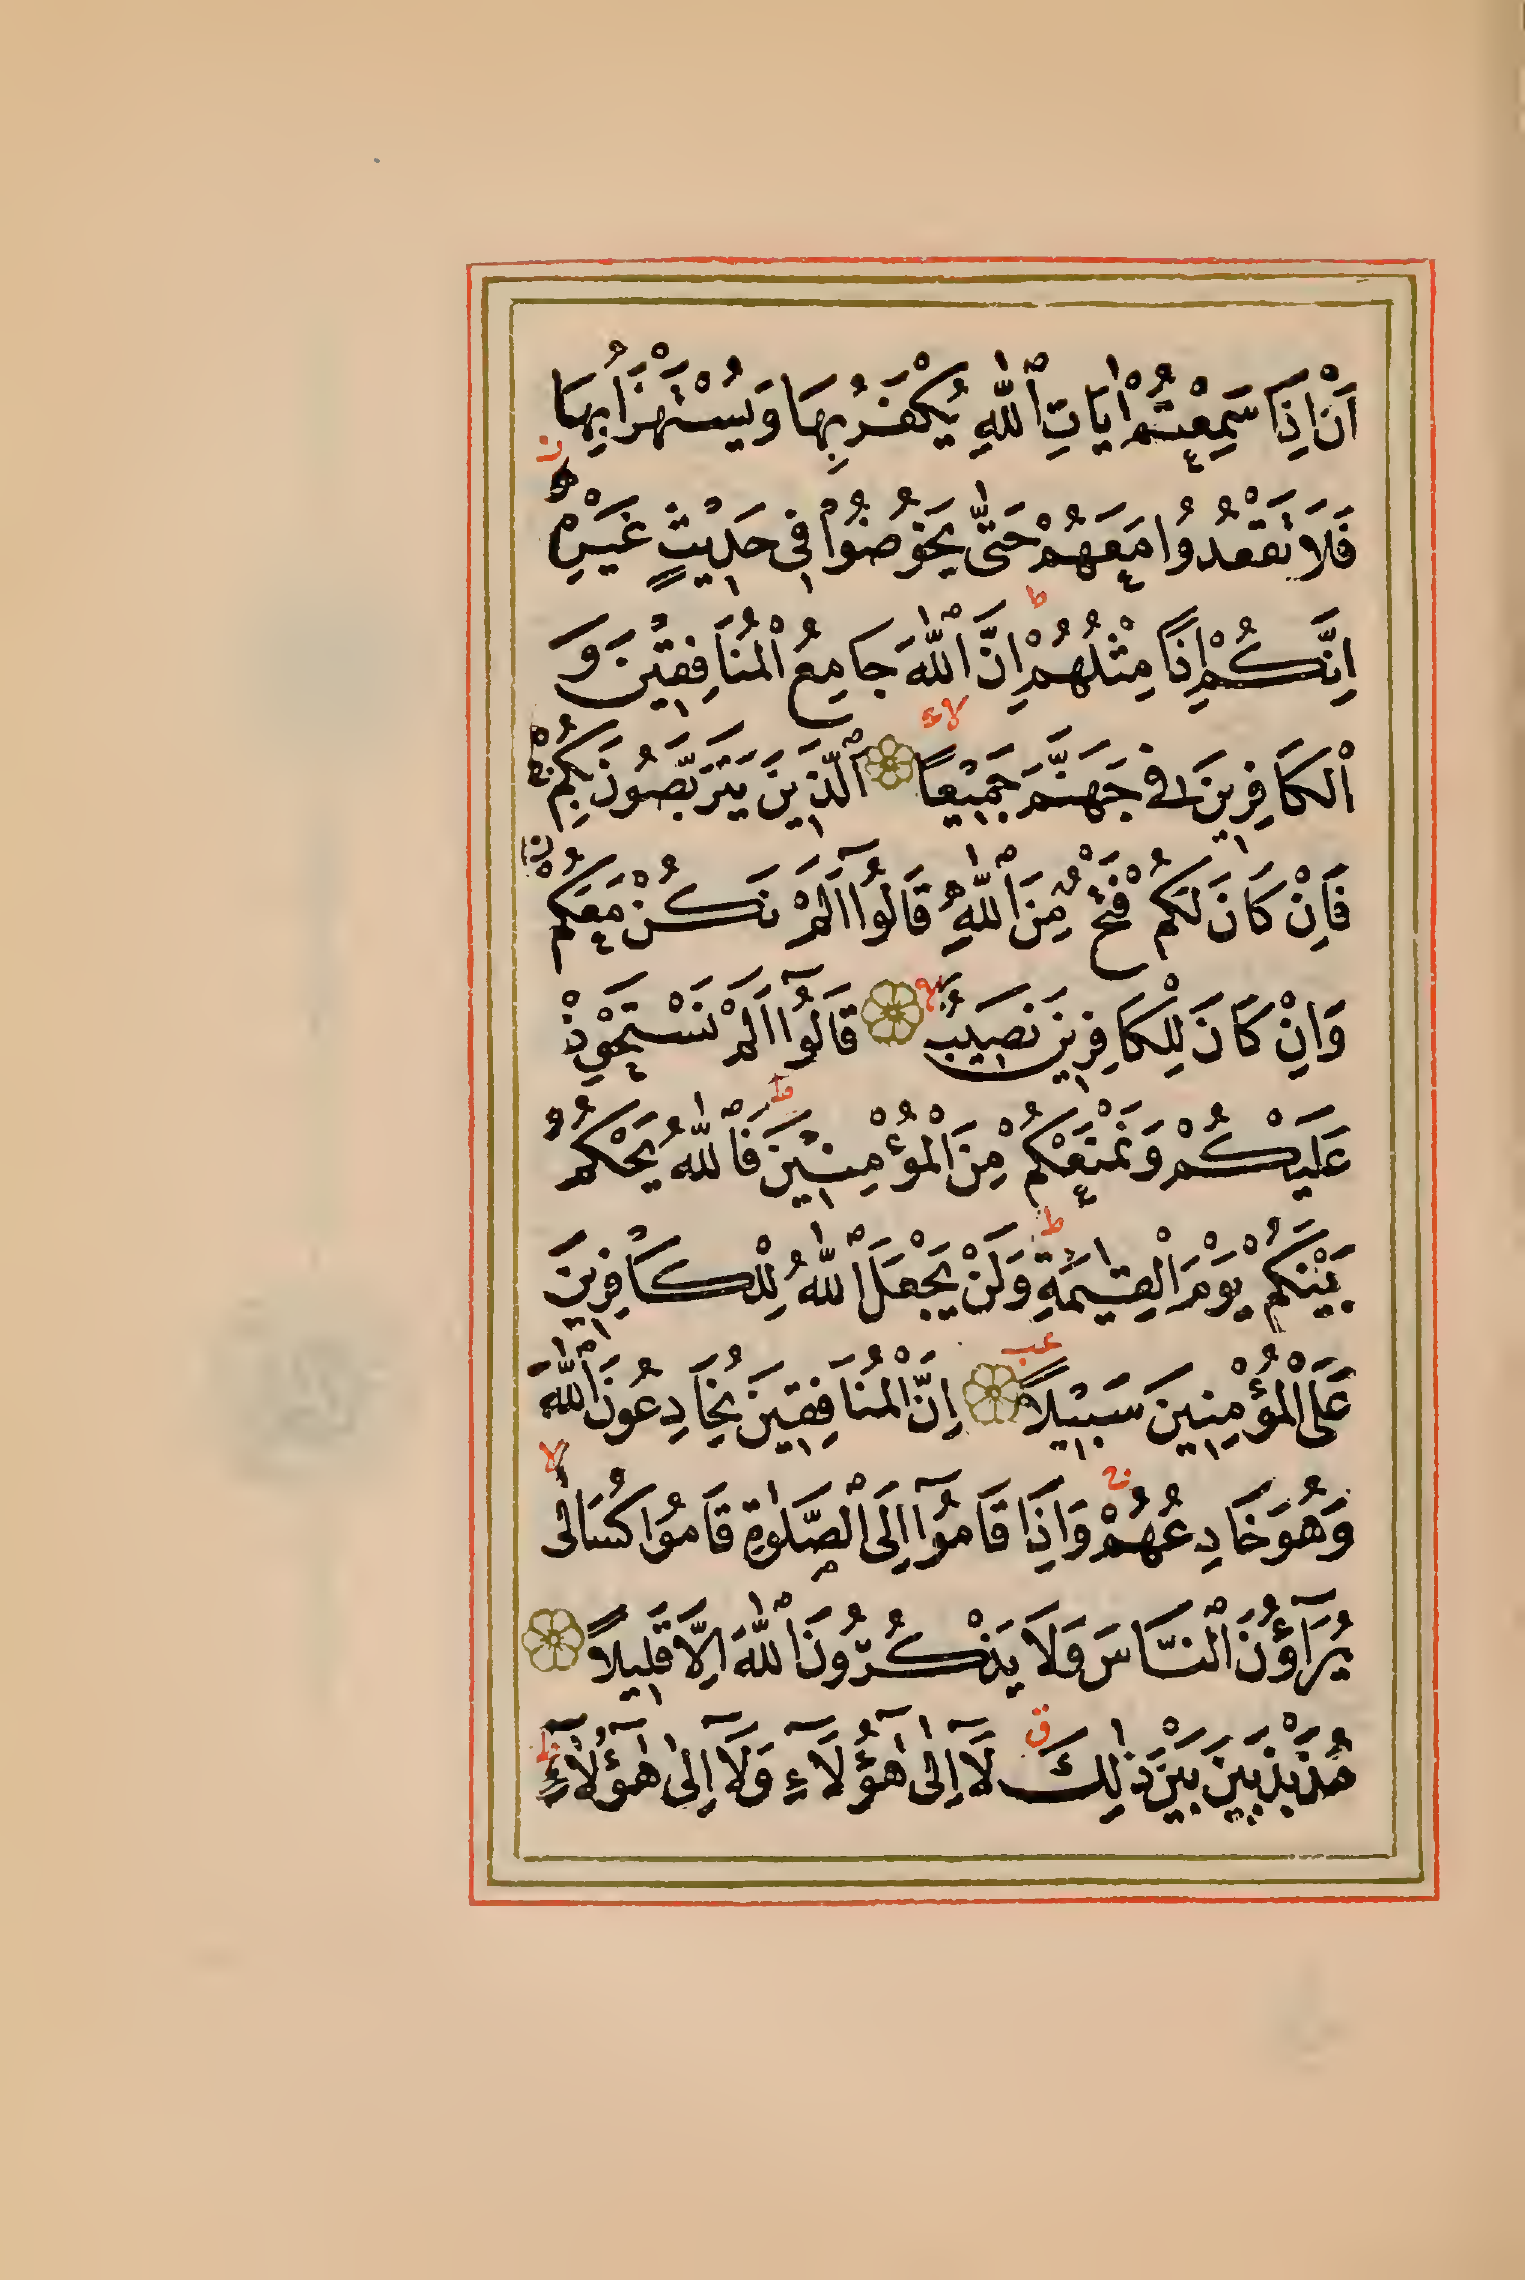 اَنْ اِذَا سَمِعْتُمْ اٰيَاتِ ٱللّٰهِ يُكْفَرُ بِهَا وَيُسْتَهْزَاُ بِهَا
فَلَا تَقْعُدُوا مَعَهُمْ حَتّٰى يَخُوضُوا فِى حَدِيْثٍ غَيْرِهٖ
اِنَّكُمْ اِذًا مِثْلُهُمْ اِنَّ ٱللّٰهَ جَامِعُ الْمُنَافِقِيْنَ وَ
الْكَافِرِينَ فِى جَهَنَّمَ جَمِيْعًا ٱلَّذِينَ يَتَرَبَّصُونَ بِكُمْ
فَاِنْ كَانَ لَكُمْ فَتْحٌ مِنَ ٱللّٰهِ قَالُوٓا اَلَمْ نَكُنْ مَعَكُمْ
وَاِنْ كَانَ لِلْكَافِرِينَ نَصِيبٌ قَالُوٓا اَلَمْ نَسْتَحْوِذْ
عَلَيْكُمْ وَنَمْنَعْكُمْ مِنَ الْمُؤْمِنِيْنَ فَٱللّٰهُ يَحْكُمُ
بَيْنَكُمْ يَوْمَ الْقِيٰمَةِ وَلَنْ يَجْعَلَ ٱللّٰهُ لِلْكَافِرِينَ
عَلَى الْمُؤْمِنِينَ سَبِيْلًا اِنَّ الْمُنَافِقِينَ يُخَادِعُونَ ٱللّٰهَ
وَهُوَ خَادِعُهُمْ وَاِذَا قَامُوٓا اِلَى ٱلصَّلٰوةِ قَامُوا كُسَالٰى
يُرَآؤُنَ ٱلنَّاسَ وَلَا يَذْكُرُونَ ٱللّٰهَ اِلَّا قَلِيلًا
مُذَبْذَبِينَ بَيْنَ ذٰلِكَ لَآ اِلٰى هٰٓؤُلَآءِ وَلَآ اِلٰى هٰٓؤُلَآءِ